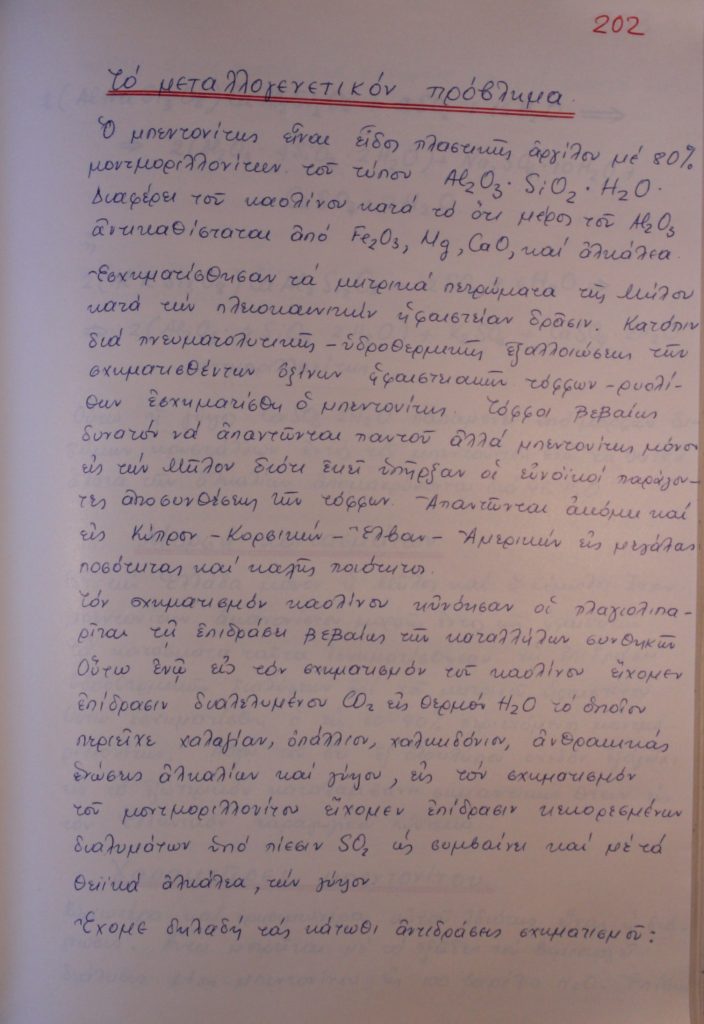 202
Τό μεταλλογενετικόν πρόβλημα.
Ὁ μπεντονίτης εἶναι εἶδος πλαστικῆς ἀργίλου μέ 80%
μοντμοριλλονίτην τοῦ τύπου Al2O3 · SiO2 · H2O ·
Διαφέρει τοῦ καολίνου κατά τό ὅτι μέρος τοῦ Al2O3
ἀντικαθίσταται ἀπό Fe2O3, Mg, CaO, καί ἀλκάλεα.
Ἐσχηματίσθησαν τά μητρικά πετρώματα τῆς Μήλου
κατά τήν πλειοκαινικήν ἡφαιστείαν δρᾶσιν. Κατόπιν
διά πνευματολυτικῆς - ὑδροθερμικῆς ἐξαλλοιώσεως τῶν
σχηματισθέντων ὀξίνων ἡφαιστειακῶν τόφφων - ρυολί-
θων ἐσχηματίσθη ὁ μπεντονίτης. Τόφφοι βεβαίως
δυνατόν νά ἀπαντῶνται παντοῦ ἀλλά μπεντονίτης μόνον
εἰς τήν Μῆλον διότι ἐκεῖ ὑπῆρξαν οἱ εὐνοϊκοί παράγον-
τες ἀποσυνθέσεως τῶν τόφφων. Ἀπαντῶνται ἀκόμη καί
εἰς Κύπρον - Κορσικήν - Ἔλβαν - Ἀμερικήν εἰς μεγάλας
ποσότητας καί καλῆς ποιότητος.
Τόν σχηματισμόν καολίνου ηὐνόησαν οἱ πλαγιολιπα-
ρῖται τῇ ἐπιδράσει βεβαίως τῶν καταλλήλων συνθηκῶν
Οὕτω ἐνῷ εἰς τόν σχηματισμόν τοῦ καολίνου εἴχομεν
ἐπίδρασιν διαλελυμένου CO2 εἰς θερμόν H2O τό ὁποῖον
περιεῖχε χαλαζίαν, ὀπάλλιον, χαλκηδόνιον, ἀνθρακικάς
ἑνώσεις ἀλκαλίων καί γύψου, εἰς τόν σχηματισμόν
τοῦ μοντμοριλλονίτου εἴχομεν ἐπίδρασιν κεκορεσμένων
διαλυμάτων ὑπό πίεσιν SO2 ὡς συμβαίνει καί μέ τά
θειϊκά ἀλκάλεα, τήν γύψον
Ἔχομε δηλαδή τάς κάτωθι ἀντιδράσεις σχηματισμοῦ: